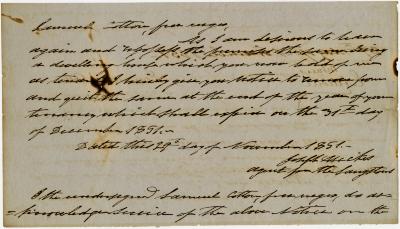 Samuel Cotton, free negro,
As I am desirous to have
again and repossess the premises the same being
a dwelling house which you now hold of me
as tenant, I hereby give you Notice to
and quit the same at the end of the year of your
tenancy which shall expire on the 31st day
of December 1851.-
Dated this 29th day of November 1851.
Joseph
agent for the Sangsters
I the undersigned Samuel Cotton, free negro, do ac-
=knowledge service of the above Notice on the